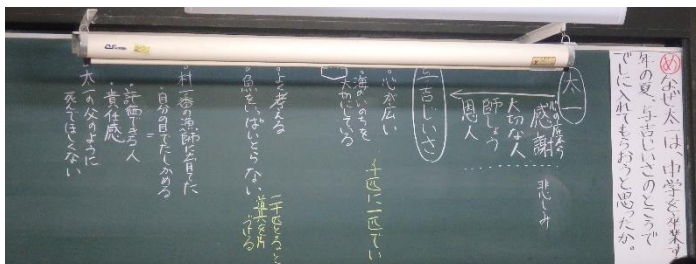 め なぜ太一は、中学を卒業す
年の夏、与吉じいさのところで
でしに入れてもらおうと思ったか。
太一
心の底から
感謝
大切な人
師しょう
恩人
悲しみ
与吉じいさ
・心が広い
・海のいのちを
大切にしている
千匹に一匹でい
・よく考える
・魚をいっぱいとらない
・村一番の漁師に育てた
・自分の目でたしかめる
=
・評価できる人
・責任感
・太一の父のように
死てほしくない